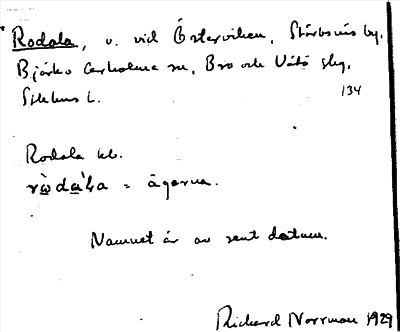 Rodala, v. vid Österviken, Stärbsnäs by,
Björkö-Arholma sn, Bro och Vätö skg,
Sthlms l. 134
Rodala ub.
rὼda̲`ɫa = ägorna.
Namnet är av sent datum.
Richard Norrman 1929